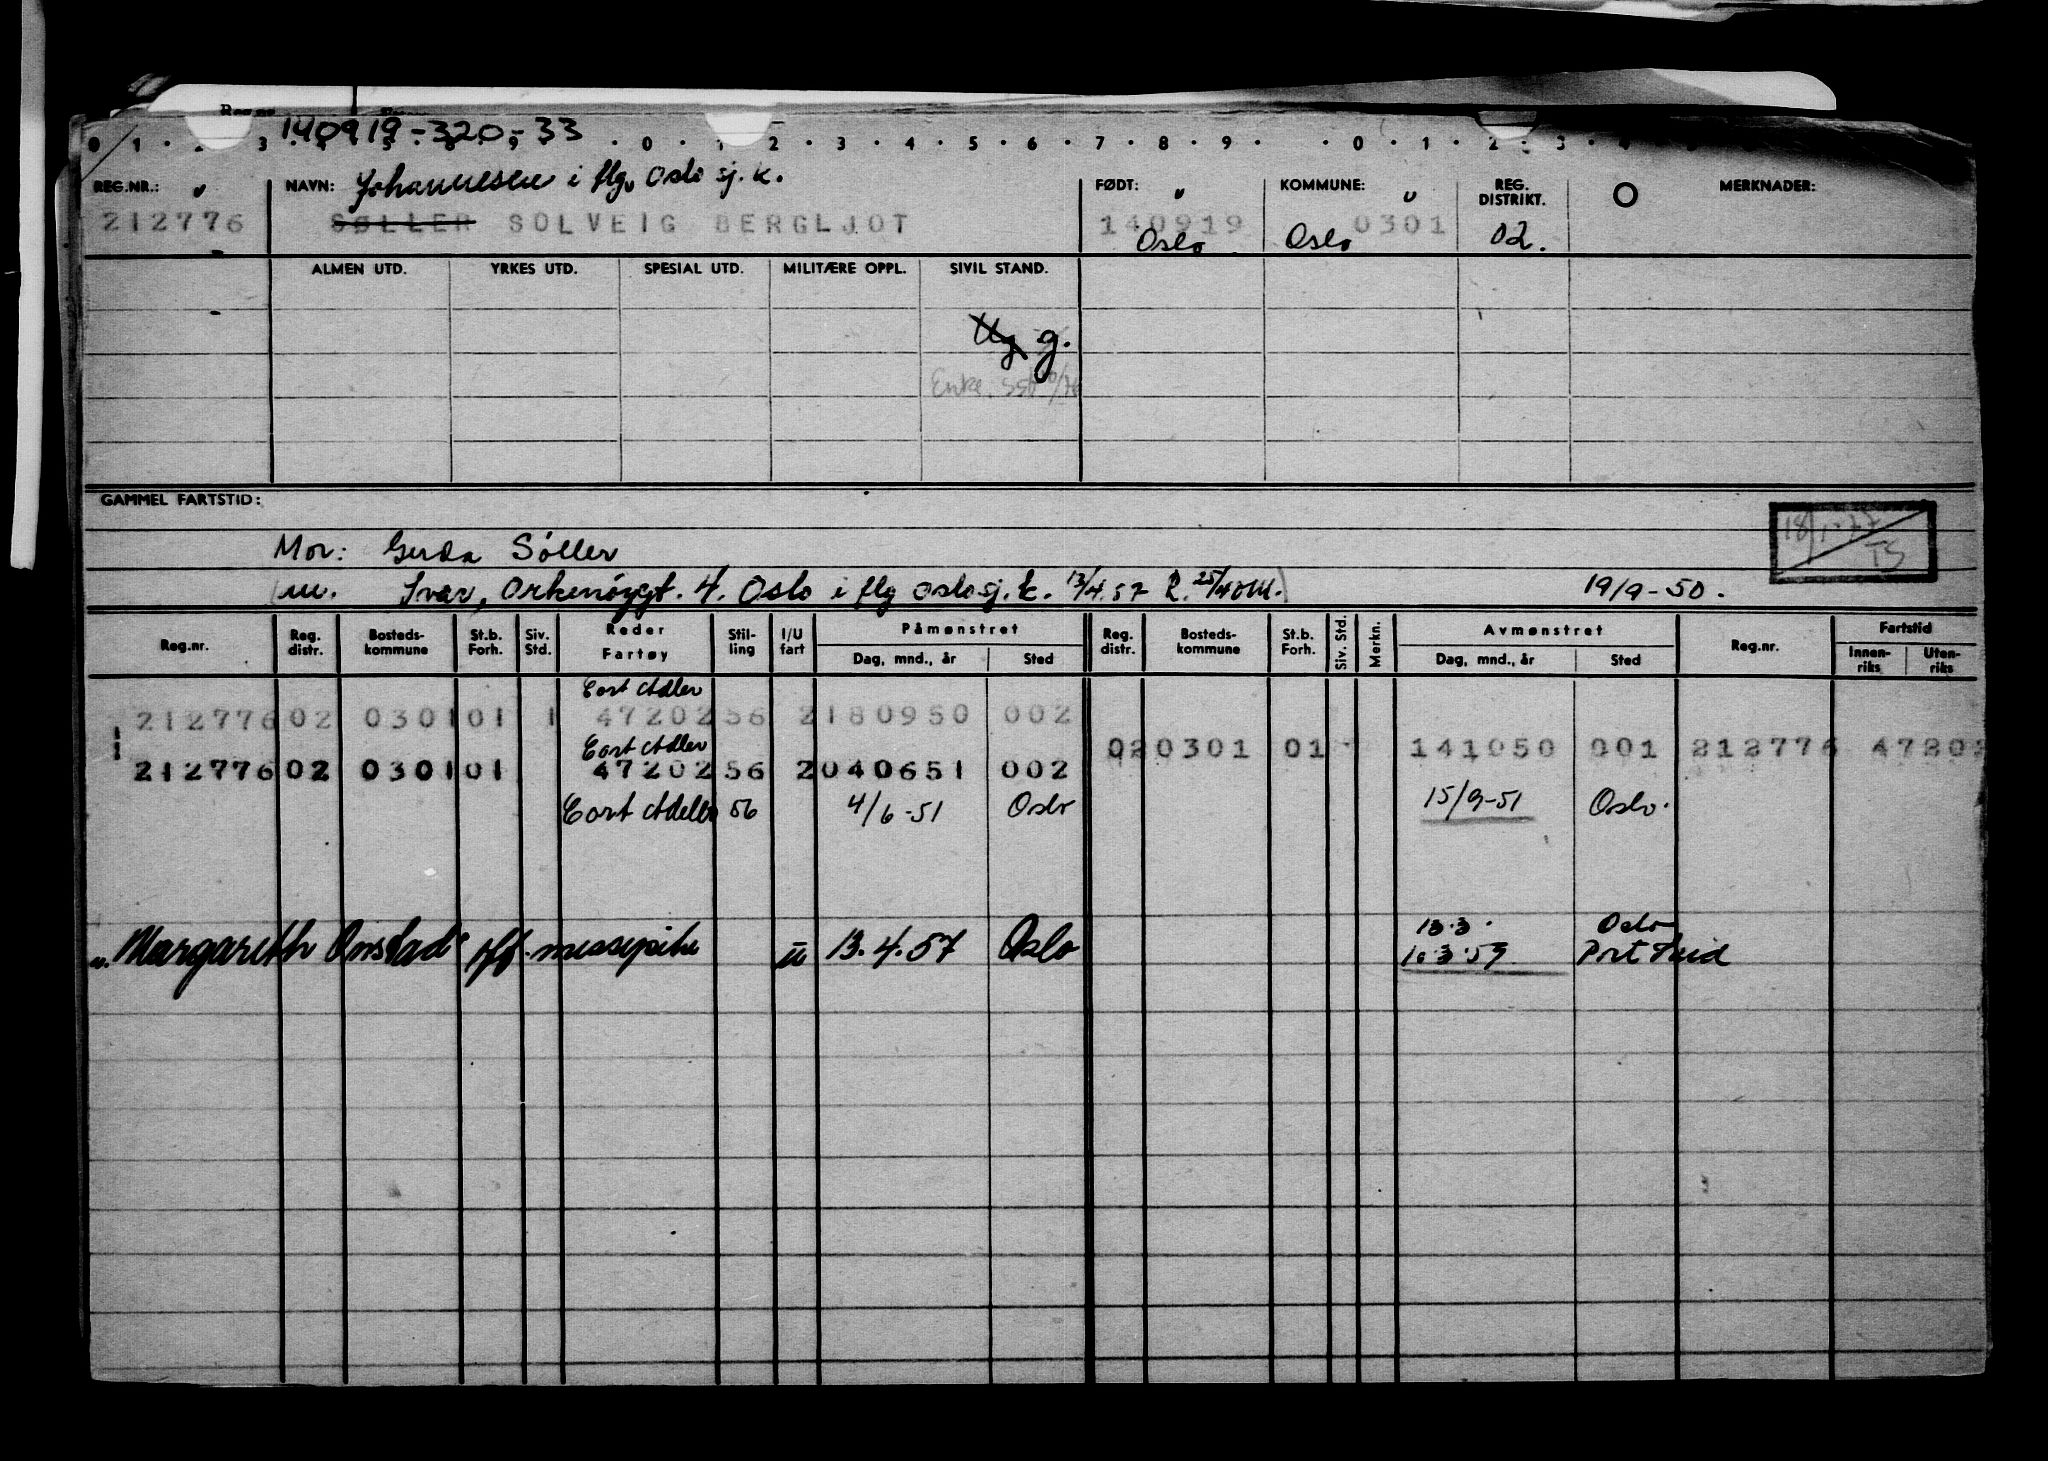 140919-320-33
0 1 . 2 3 . 0 . 1 . 2 . 3 . 4 . 5 . 6 . 7 . 8 . 9 . . 0 . 1 . 2 . 3
Johannesen i flg. Oslo sj. k.
REG.NR.: NAVN: FØDT: KOMMUNE: REG. DISTRIKT. O MERKNADER:
212776 SØLLER SOLVEIG BERGLJOT 140919 0301
Oslo Oslo 02.
ALMEN UTD. YRKES UTD. SPESIAL UTD. MILITÆRE OPPL. SIVIL STAND.
Ug g.
Enke.
GAMMEL FARTSTID:
18/1-77
TS
Mor: Gerda Søller
m. Ivar, Orkenøygt. 4. Oslo i flg Oslo sj. k. 13/4.57 19/9-50.
Reg.nr. Reg. distr. Bosteds-kommune St.b. Forh. Siv. Std. Reder Fartøy Stil-ling I/U fart Påmønstret Dag, mnd., år Sted Reg. distr. Bosteds-kommune St.b. Forh. Siv. Std. Merkn. Avmønstret Dag, mnd., år Sted Reg.nr. Fartstid Innen-riks Uten-riks
Cort Adler
212776 02 0301 01 1 47202 56 2 180950 002
Cort Adler
02 0301 01 141050 001 212776 4720
212776 02 0301 01 47202 56 2 040651 002
Cort Adeler 56 4/6-51 Oslo 15/9-51 Oslo.
13.3. Oslo
"Margareth Onstad" messepike u 13.4.57 Oslo